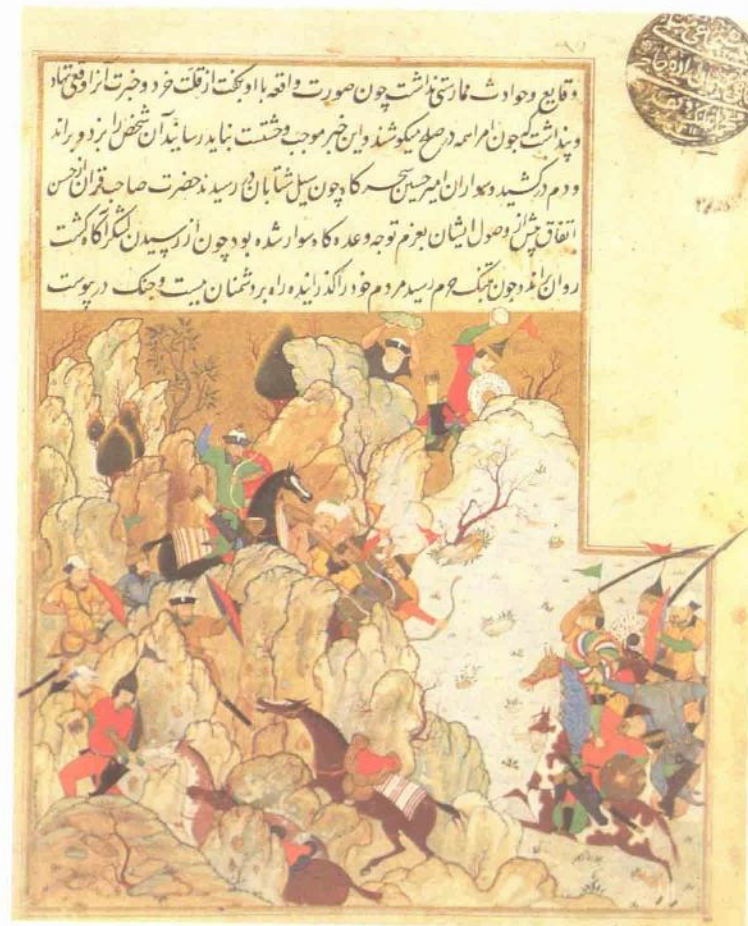 وقایع و حوادث ممارستی نداشت چون صورت واقعه با او بگفت از قلت خرد و خبرت آنرا وقعی ننهاد
و پنداشت که چون امرا همه در صلح میکوشند و این خبر موجب وحشتست نباید رسانید آن شخص را بزد و براند
و دم در کشید و سواران امیر حسین سحرگاه چون سیل شتابان در رسیدند حضرت صاحب قران از حسن
اتفاق پیش از وصول ایشان بعزم توجه وعده گاه سوار شده بود چون از رسیدن لشکر آگاه گشت
روان براند و چون بتنگ حرم رسید مردم خود را گذرانیده راه بر دشمنان ببست و جنک در پیوست